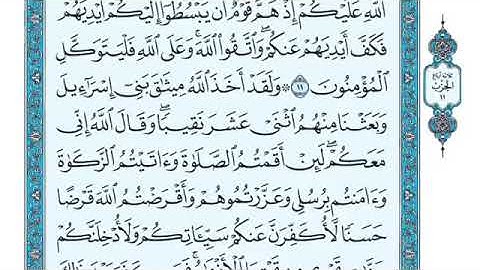 اللَّهِ عَلَيْكُمْ إِذْ هَمَّ قَوْمٌ أَن يَبْسُطُوا إِلَيْكُمْ أَيْدِيَهُمْ
فَكَفَّ أَيْدِيَهُمْ عَنكُمْ ۖ وَاتَّقُوا اللَّهَ ۚ وَعَلَى اللَّهِ فَلْيَتَوَكَّلِ
الْمُؤْمِنُونَ ١١ ۞ وَلَقَدْ أَخَذَ اللَّهُ مِيثَاقَ بَنِي إِسْرَائِيلَ
وَبَعَثْنَا مِنْهُمُ اثْنَيْ عَشَرَ نَقِيبًا ۖ وَقَالَ اللَّهُ إِنِّي
مَعَكُمْ ۖ لَئِنْ أَقَمْتُمُ الصَّلَوٰةَ وَءَاتَيْتُمُ الزَّكَوٰةَ
وَءَامَنتُم بِرُسُلِي وَعَزَّرْتُمُوهُمْ وَأَقْرَضْتُمُ اللَّهَ قَرْضًا
حَسَنًا لَّأُكَفِّرَنَّ عَنكُمْ سَيِّئَاتِكُمْ وَلَأُدْخِلَنَّكُمْ
الحزب
١١